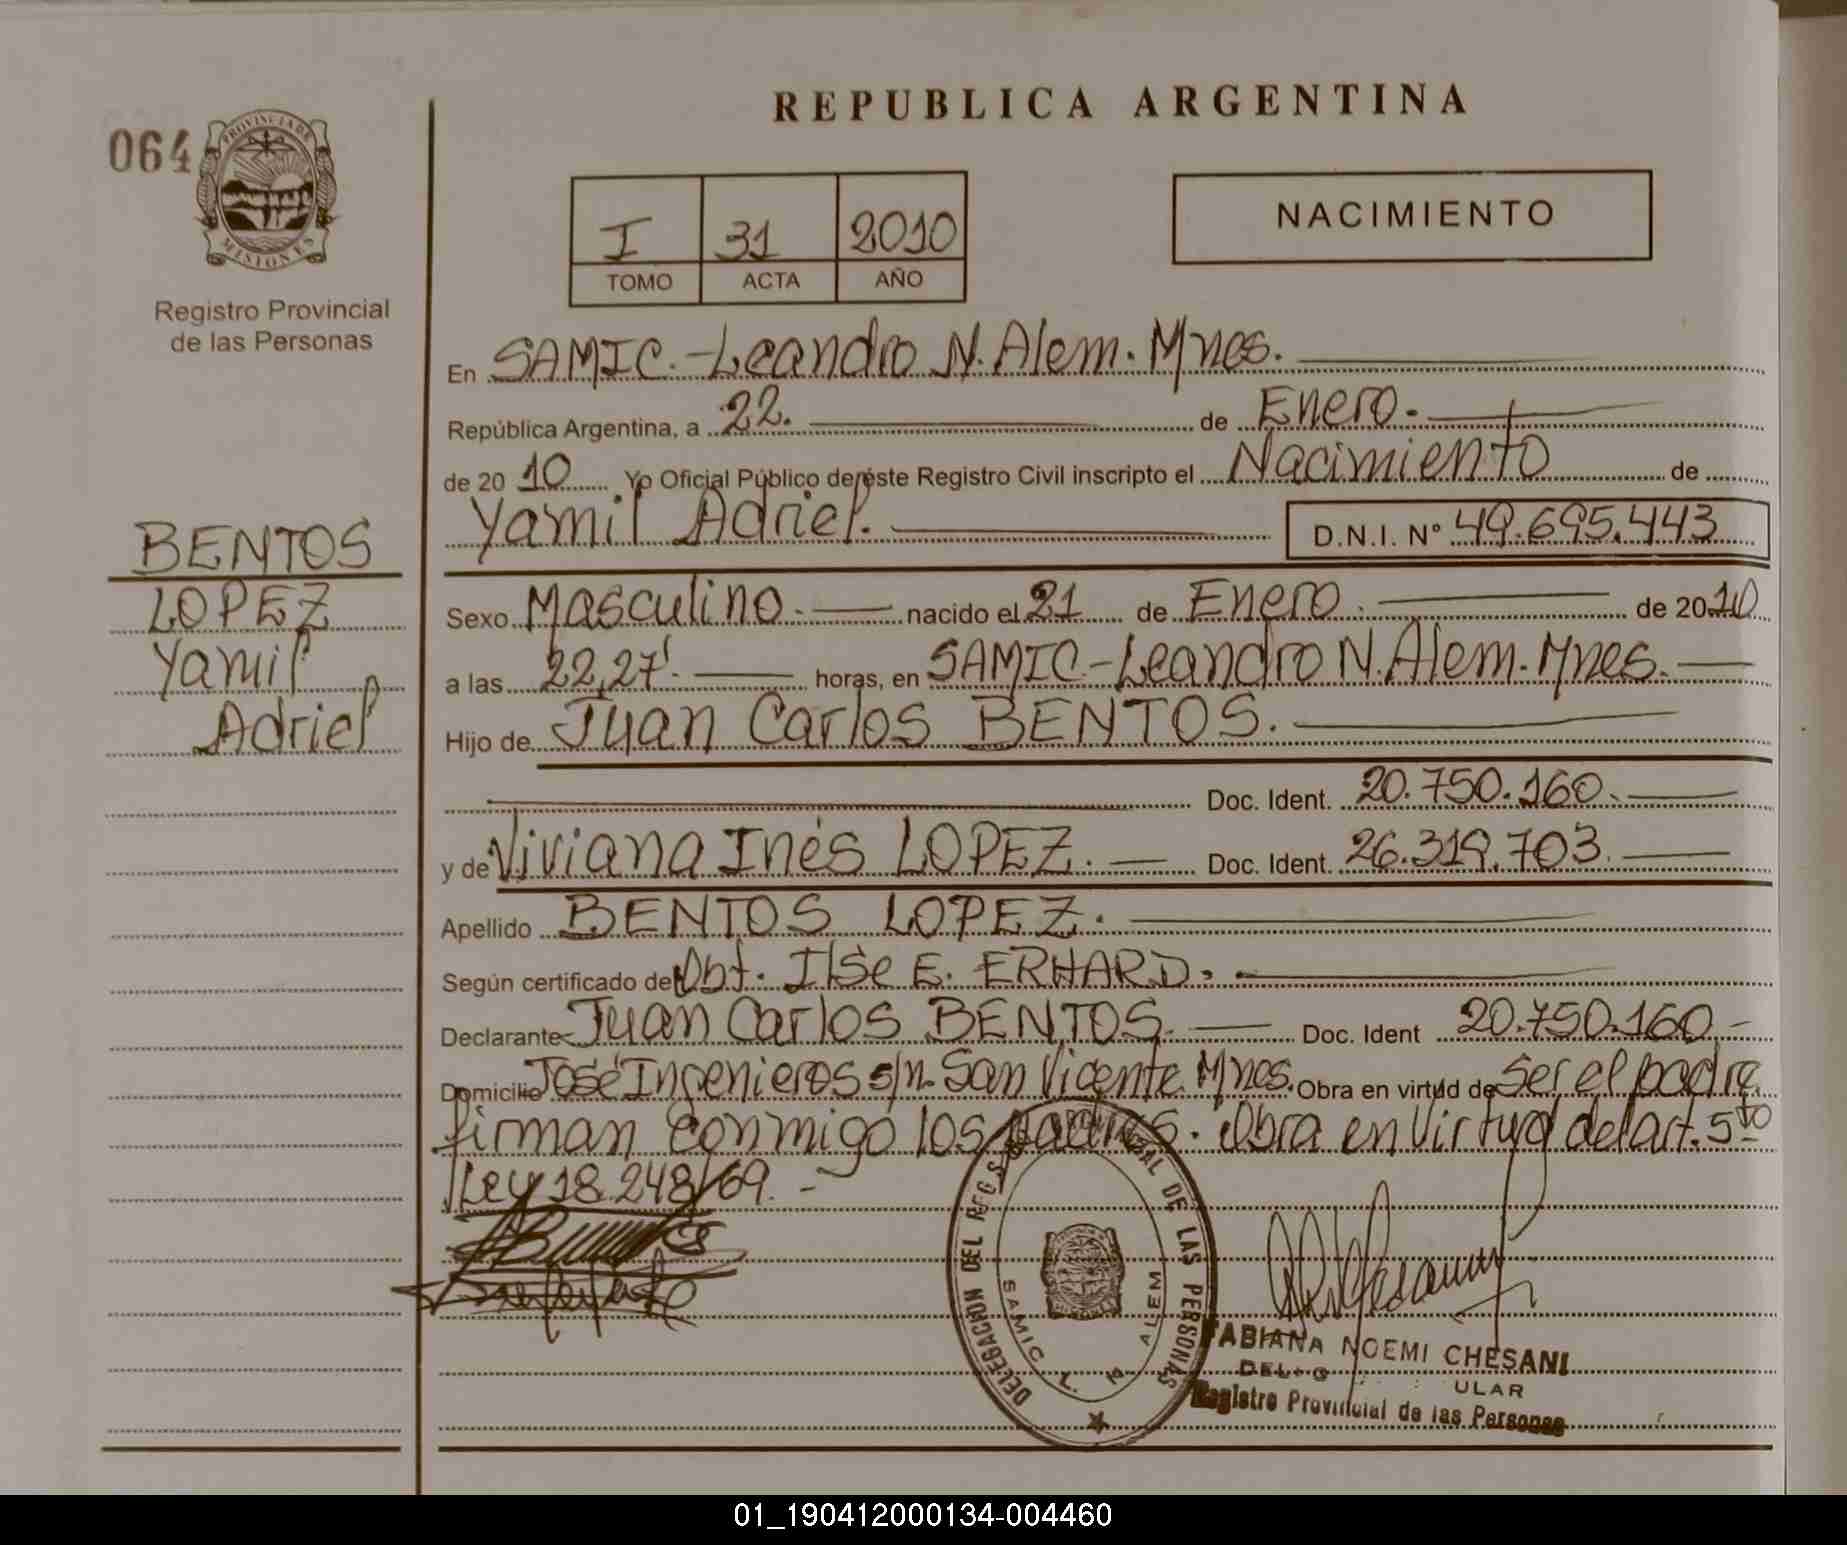 REPUBLICA ARGENTINA
064
PROVINCIA DE
MISIONES
Registro Provincial
de las Personas
I 31 2010
TOMO ACTA AÑO
NACIMIENTO
En SAMIC.-Leandro N. Alem. Mnes.
República Argentina, a 22. de Enero.
de 20 10 Yo Oficial Público de éste Registro Civil inscripto el Nacimiento de
Yamil Adriel. D.N.I. Nº 49.695.443
BENTOS
LOPEZ
Yamil
Adriel
Sexo Masculino. nacido el 21 de Enero. de 2010
a las 22,27'. horas, en SAMIC-Leandro N. Alem. Mnes.
Hijo de Juan Carlos BENTOS.
Doc. Ident. 20.750.160.
y de Viviana Inés LOPEZ. Doc. Ident. 26.319.703.
Apellido BENTOS LOPEZ.
Según certificado de Obt. Ilse E. ERHARD.
Declarante Juan Carlos BENTOS. Doc. Ident 20.750.160.-
Domicilio José Ingenieros s/n. San Vicente. Mnes. Obra en virtud de Ser el padre
firman conmigo los padres. Obra en Virtud del art. 5to
Ley 18.248/69.-
DELEGACION DEL REG. PROVINCIAL DE LAS PERSONAS
SAMIC L. N. ALEM
FABIANA NOEMI CHESANI
Registro Provincial de las Personas
01_190412000134-004460